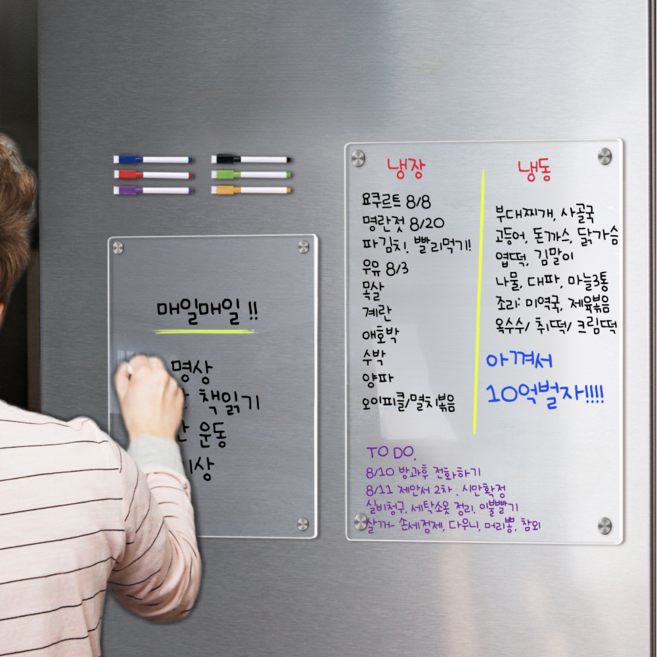 매일매일 !!
명상
책읽기
운동
냉장
요쿠르트 8/8
명란젓 8/20
파김치, 빨리먹기!
우유 8/3
목살
계란
애호박
수박
양파
오이피클/멸치볶음
냉동
부대찌개, 사골국
고등어, 돈까스, 닭가슴
엽떡, 김말이
나물, 대파, 마늘3통
조리: 미역국, 제육볶음
옥수수/ 취떡/ 크림떡
아껴서
10억벌자!!!!
TO DO.
8/10 방과후 전화하기
8/11 제안서 2차, 시안확정
실비청구, 세탁소옷 정리, 이불빨기
살거~ 손세정제, 다우니, 머리뽕, 참외